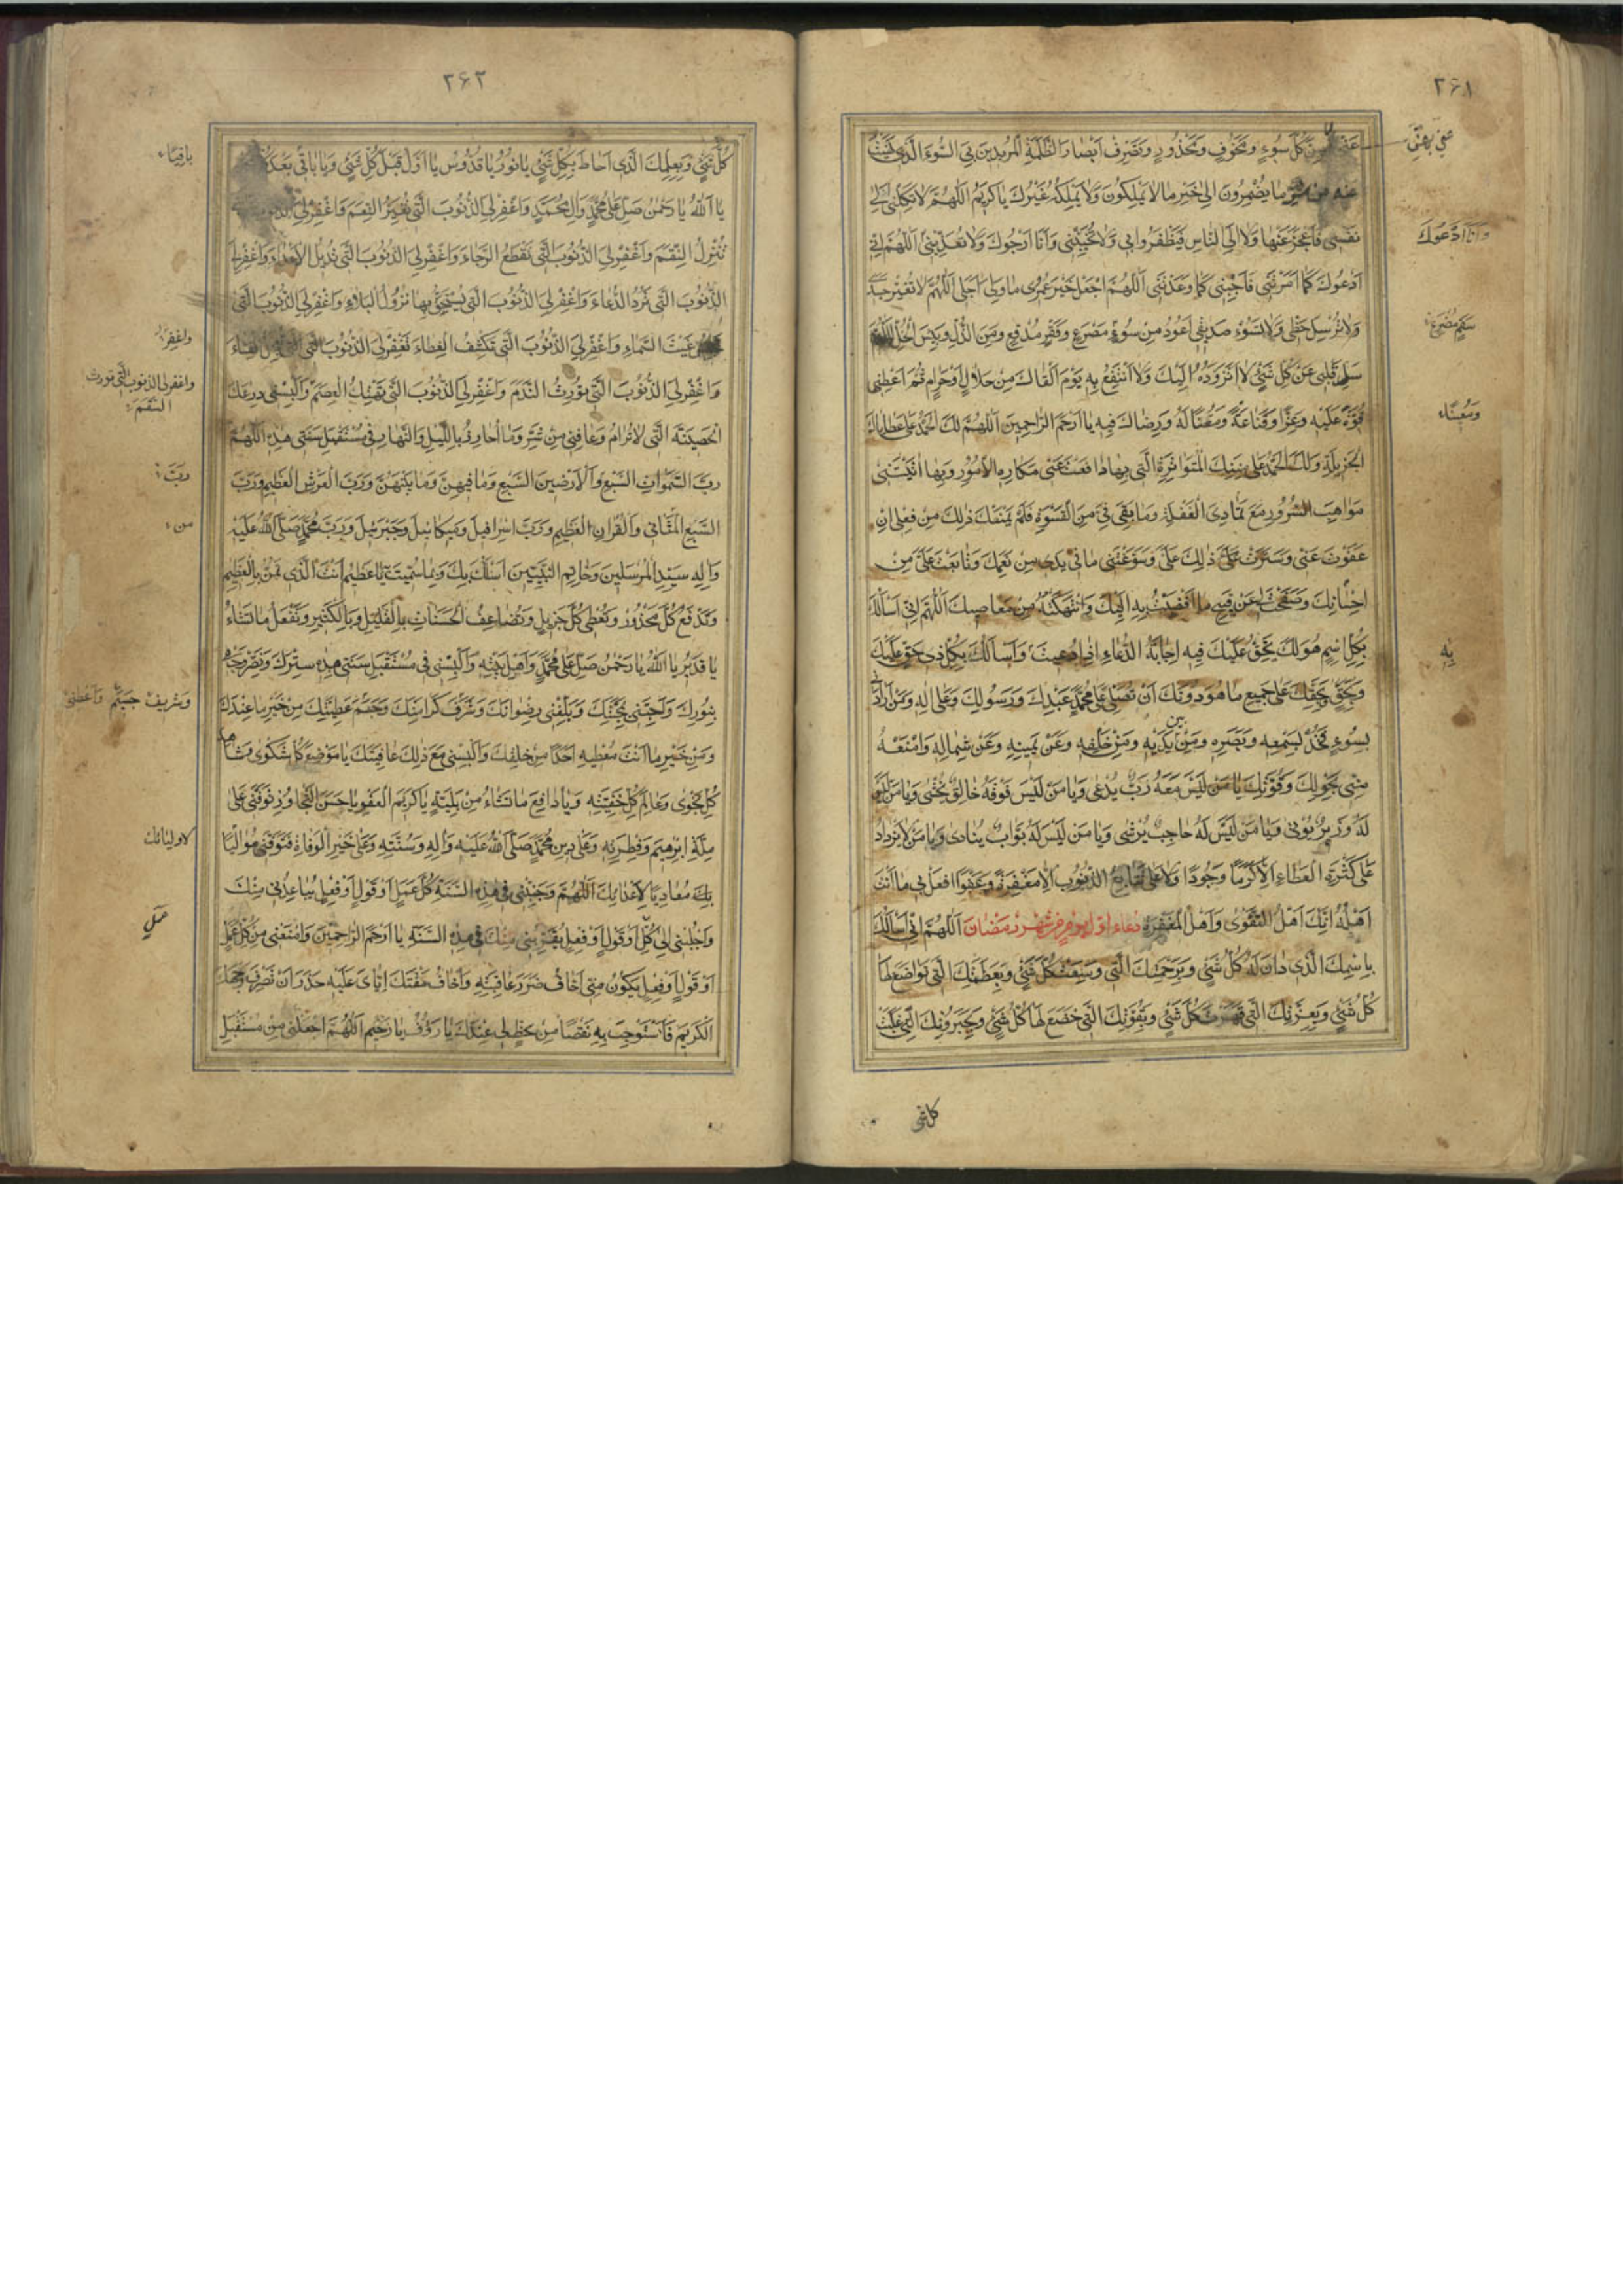 ۲۶۱
كُلَّ سُوءٍ وَمَخُوفٍ وَمَحْذُورٍ وَتَصْرِفَ اَبْصَارَ الظَّلَمَةِ الْمُرِيدِينَ بِي السُّوءَ الَّذِي
عَنْهُ مِنْ شَرِّ مَا يُضْمِرُونَ اِلَى خَيْرِ مَا لَا يَمْلِكُونَ وَلَا يَمْلِكُهُ غَيْرُكَ يَا كَرِيمُ اَللّٰهُمَّ لَا تَكِلْنِي اِلَى
نَفْسِي فَاَعْجِزَ عَنْهَا وَلَا اِلَى النَّاسِ فَيَظْفَرُوا بِي وَلَا تُخَيِّبْنِي وَاَنَا اَرْجُوكَ وَلَا تُعَذِّبْنِي اَللّٰهُمَّ اِنِّي
وَاَنَا اَدْعُوكَ
اَدْعُوكَ كَمَا اَمَرْتَنِي فَاَجِبْنِي كَمَا وَعَدْتَنِي اَللّٰهُمَّ اجْعَلْ خَيْرَ عُمْرِي مَا وَلِيَ اَجَلِي اَللّٰهُمَّ لَا تُغَيِّرْ جَسَدِي
وَلَا تُرْسِلْ حَظِّي وَلَا تَسُوءْ صَدِيقِي اَعُوذُ مِنْ سُوءِ مَصْرَعٍ وَفَقْرٍ مُدْقِعٍ وَمِنَ الذُّلِّ وَبِئْسَ الْخِلُّ اَللّٰهُمَّ
سَلِّ قَلْبِي عَنْ كُلِّ شَيْءٍ لَا اَتَزَوَّدُهُ اِلَيْكَ وَلَا اَنْتَفِعُ بِهِ يَوْمَ اَلْقَاكَ مِنْ حَلَالٍ اَوْ حَرَامٍ ثُمَّ اَعْطِنِي
قُوَّةً عَلَيْهِ وَعِزًّا وَقَنَاعَةً وَمَقْتًا لَهُ وَرِضَاكَ فِيهِ يَا اَرْحَمَ الرَّاحِمِينَ اَللّٰهُمَّ لَكَ الْحَمْدُ عَلَى عَطَايَاكَ
الْجَزِيلَةِ وَلَكَ الْحَمْدُ عَلَى مِنَنِكَ الْمُتَوَاتِرَةِ الَّتِي بِهَا دَافَعْتَ عَنِّي مَكَارِهَ الْاُمُورِ وَبِهَا اٰتَيْتَنِي
مَوَاهِبَ السُّرُورِ مَعَ تَمَادِيَّ الْغَفْلَةِ وَمَا بَقِيَ فِيَّ مِنَ الْقَسْوَةِ فَلَمْ يَمْنَعْكَ ذٰلِكَ مِنْ فِعْلِي اَنْ
عَفَوْتَ عَنِّي وَسَتَرْتَ ذٰلِكَ عَلَيَّ وَسَوَّغْتَنِي مَا فِي يَدِي مِنْ نِعَمِكَ وَتَابَعْتَ عَلَيَّ مِنْ
اِحْسَانِكَ وَصَفَحْتَ عَنْ قَبِيحِ مَا اَفْضَيْتُ بِهِ اِلَيْكَ وَانْتَهَكْتُهُ مِنْ مَعَاصِيكَ اَللّٰهُمَّ اِنِّي اَسْأَلُكَ
بِكُلِّ اسْمٍ هُوَ لَكَ يَحِقُّ عَلَيْكَ فِيهِ اِجَابَةُ الدُّعَاءِ اِذَا دُعِيتَ وَاَسْأَلُكَ بِكُلِّ ذِي حَقٍّ عَلَيْكَ
بِهِ
وَبِحَقِّكَ عَلَى جَمِيعِ مَا هُوَ دُونَكَ اَنْ تُصَلِّيَ عَلَى مُحَمَّدٍ عَبْدِكَ وَرَسُولِكَ وَعَلَى اٰلِهِ وَمَنْ اَرَادَنِي
بِسُوءٍ فَخُذْ بِسَمْعِهِ وَبَصَرِهِ وَمِنْ بَيْنِ يَدَيْهِ وَمِنْ خَلْفِهِ وَعَنْ يَمِينِهِ وَعَنْ شِمَالِهِ وَامْنَعْهُ
مِنِّي بِحَوْلِكَ وَقُوَّتِكَ يَا مَنْ لَيْسَ مَعَهُ رَبٌّ يُدْعَى وَيَا مَنْ لَيْسَ فَوْقَهُ خَالِقٌ يُخْشَى وَيَا مَنْ لَيْسَ
لَهُ وَزِيرٌ يُؤْتَى وَيَا مَنْ لَيْسَ لَهُ حَاجِبٌ يُرْشَى وَيَا مَنْ لَيْسَ لَهُ بَوَّابٌ يُنَادَى وَيَا مَنْ لَا يَزْدَادُ
عَلَى كَثْرَةِ الْعَطَاءِ اِلَّا كَرَمًا وَجُودًا وَلَا عَلَى تَتَابُعِ الذُّنُوبِ اِلَّا مَغْفِرَةً وَعَفْوًا افْعَلْ بِي مَا اَنْتَ
اَهْلُهُ اِنَّكَ اَهْلُ التَّقْوَى وَاَهْلُ الْمَغْفِرَةِ دُعَاءِ اَوَّلِ يَوْمٍ مِنْ شَهْرِ رَمَضَانَ اَللّٰهُمَّ اِنِّي اَسْأَلُكَ
بِاسْمِكَ الَّذِي دَانَ لَهُ كُلُّ شَيْءٍ وَبِرَحْمَتِكَ الَّتِي وَسِعَتْ كُلَّ شَيْءٍ وَبِعَظَمَتِكَ الَّتِي تَوَاضَعَ لَهَا
كُلُّ شَيْءٍ وَبِعِزَّتِكَ الَّتِي قَهَرَتْ كُلَّ شَيْءٍ وَبِقُوَّتِكَ الَّتِي خَضَعَ لَهَا كُلُّ شَيْءٍ وَبِجَبَرُوتِكَ الَّتِي غَلَبَتْ
۲۶۲
كُلَّ شَيْءٍ وَبِعِلْمِكَ الَّذِي اَحَاطَ بِكُلِّ شَيْءٍ يَا نُورُ يَا قُدُّوسُ يَا اَوَّلُ قَبْلَ كُلِّ شَيْءٍ وَيَا بَاقِي بَعْدَ
يَا اَللّٰهُ يَا رَحْمٰنُ صَلِّ عَلَى مُحَمَّدٍ وَاٰلِ مُحَمَّدٍ وَاغْفِرْ لِيَ الذُّنُوبَ الَّتِي تُغَيِّرُ النِّعَمَ وَاغْفِرْ لِيَ
تُنْزِلُ النِّقَمَ وَاغْفِرْ لِيَ الذُّنُوبَ الَّتِي تَقْطَعُ الرَّجَاءَ وَاغْفِرْ لِيَ الذُّنُوبَ الَّتِي تُدِيلُ الْاَعْدَاءَ وَاغْفِرْ لِيَ
الذُّنُوبَ الَّتِي تَرُدُّ الدُّعَاءَ وَاغْفِرْ لِيَ الذُّنُوبَ الَّتِي يُسْتَحَقُّ بِهَا نُزُولُ الْبَلَاءِ وَاغْفِرْ لِيَ الذُّنُوبَ الَّتِي
غَيْثَ السَّمَاءِ وَاغْفِرْ لِيَ الذُّنُوبَ الَّتِي تَكْشِفُ الْغِطَاءَ وَاغْفِرْ لِيَ الذُّنُوبَ الَّتِي
وَاغْفِرْ لِيَ الذُّنُوبَ الَّتِي تُورِثُ النَّدَمَ وَاغْفِرْ لِيَ الذُّنُوبَ الَّتِي تَهْتِكُ الْعِصَمَ وَاَلْبِسْنِي دِرْعَكَ
الْحَصِينَةَ الَّتِي لَا تُرَامُ وَعَافِنِي مِنْ شَرِّ مَا اُحَاذِرُ بِاللَّيْلِ وَالنَّهَارِ فِي مُسْتَقْبَلِ سَنَتِي هٰذِهِ اَللّٰهُمَّ
رَبَّ السَّمٰوَاتِ السَّبْعِ وَالْاَرَضِينَ السَّبْعِ وَمَا فِيهِنَّ وَمَا بَيْنَهُنَّ وَرَبَّ الْعَرْشِ الْعَظِيمِ وَرَبَّ
رَبَّ
السَّبْعِ الْمَثَانِي وَالْقُرْاٰنِ الْعَظِيمِ وَرَبَّ اِسْرَافِيلَ وَمِيكَائِيلَ وَجَبْرَئِيلَ وَرَبَّ مُحَمَّدٍ صَلَّى اللّٰهُ عَلَيْهِ
وَاٰلِهِ سَيِّدِ الْمُرْسَلِينَ وَخَاتِمِ النَّبِيِّينَ اَسْأَلُكَ بِكَ وَبِمَا سَمَّيْتَ يَا عَظِيمُ اَنْتَ الَّذِي تَمُنُّ بِالْعَظِيمِ
وَتَدْفَعُ كُلَّ مَحْذُورٍ وَتُعْطِي كُلَّ جَزِيلٍ وَتُضَاعِفُ الْحَسَنَاتِ بِالْقَلِيلِ وَبِالْكَثِيرِ وَتَفْعَلُ مَا تَشَاءُ
يَا قَدِيرُ يَا اَللّٰهُ يَا رَحْمٰنُ صَلِّ عَلَى مُحَمَّدٍ وَاَهْلِ بَيْتِهِ وَاَلْبِسْنِي فِي مُسْتَقْبَلِ سَنَتِي هٰذِهِ سِتْرَكَ وَنَضِّرْ وَجْهِي
بِنُورِكَ وَاَحِبَّنِي بِمَحَبَّتِكَ وَبَلِّغْنِي رِضْوَانَكَ وَشَرَفَ كَرَامَتِكَ وَجَسِيمَ عَطِيَّتِكَ مِنْ خَيْرِ مَا عِنْدَكَ
وَمِنْ خَيْرِ مَا اَنْتَ مُعْطِيهِ اَحَدًا مِنْ خَلْقِكَ وَاَلْبِسْنِي مَعَ ذٰلِكَ عَافِيَتَكَ يَا مَوْضِعَ كُلِّ شَكْوَى وَشَاهِدَ
كُلِّ نَجْوَى وَعَالِمَ كُلِّ خَفِيَّةٍ وَيَا دَافِعَ مَا تَشَاءُ مِنْ بَلِيَّةٍ يَا كَرِيمَ الْعَفْوِ يَا حَسَنَ التَّجَاوُزِ تَوَفَّنِي عَلَى
مِلَّةِ اِبْرٰهِيمَ وَفِطْرَتِهِ وَعَلَى دِينِ مُحَمَّدٍ صَلَّى اللّٰهُ عَلَيْهِ وَاٰلِهِ وَسُنَّتِهِ وَعَلَى خَيْرِ الْوَفَاةِ فَتَوَفَّنِي مُوَالِيًا
لاوليائك
مُعَادِيًا لِاَعْدَائِكَ اَللّٰهُمَّ وَجَنِّبْنِي فِي هٰذِهِ السَّنَةِ كُلَّ عَمَلٍ اَوْ قَوْلٍ اَوْ فِعْلٍ يُبَاعِدُنِي مِنْكَ
وَاجْلِبْنِي اِلَى كُلِّ اَوْ قَوْلٍ اَوْ فِعْلٍ يُقَرِّبُنِي مِنْكَ فِي هٰذِهِ السَّنَةِ يَا اَرْحَمَ الرَّاحِمِينَ وَامْنَعْنِي مِنْ كُلِّ عَمَلٍ
عَمَلٍ
اَوْ قَوْلٍ اَوْ فِعْلٍ يَكُونُ مِنِّي اَخَافُ ضَرَرَ عَاقِبَتِهِ وَاَخَافُ مَقْتَكَ اِيَّايَ عَلَيْهِ حَذَرَ اَنْ تَصْرِفَ وَجْهَكَ
الْكَرِيمَ فَاَسْتَوْجِبَ بِهِ نَقْصًا مِنْ حَظٍّ لِي عِنْدَكَ يَا رَؤُوفُ يَا رَحِيمُ اَللّٰهُمَّ اجْعَلْنِي مِنْ مُسْتَقْبَلِ